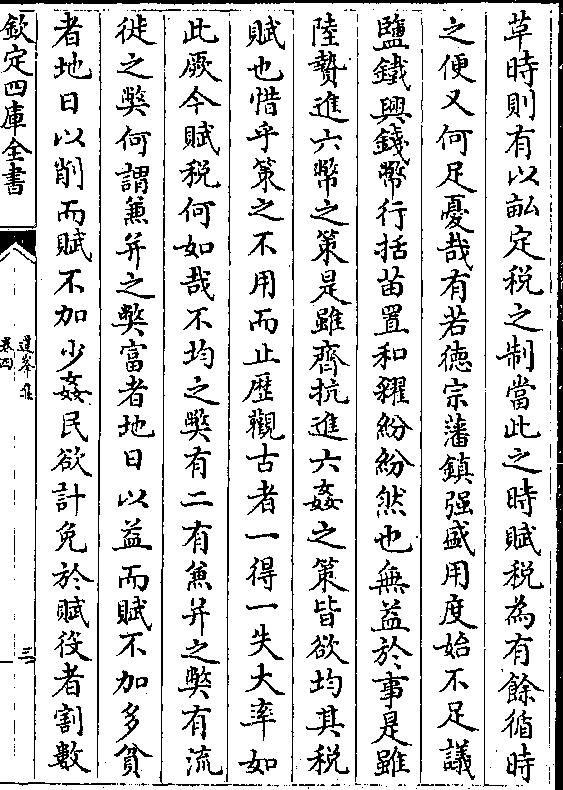 草時則有以畝定稅之制當此之時賦稅為有餘循時
之便又何足憂哉有若徳宗藩鎮强盛用度始不足議
鹽鐵興錢幣行括苗置和糴紛紛然也無益於事是雖
陸贄進六幣之策是雖齊抗進六姦之策皆欲均其稅
賦也惜乎策之不用而止歴觀古者一得一失大率如
此厥今賦稅何如哉不均之弊有二有兼并之弊有流
徙之弊何謂兼并之弊富者地日以益而賦不加多貧
者地日以削而賦不加少姦民欲計免於賦役者割數
欽定四庫全書
卷四
三